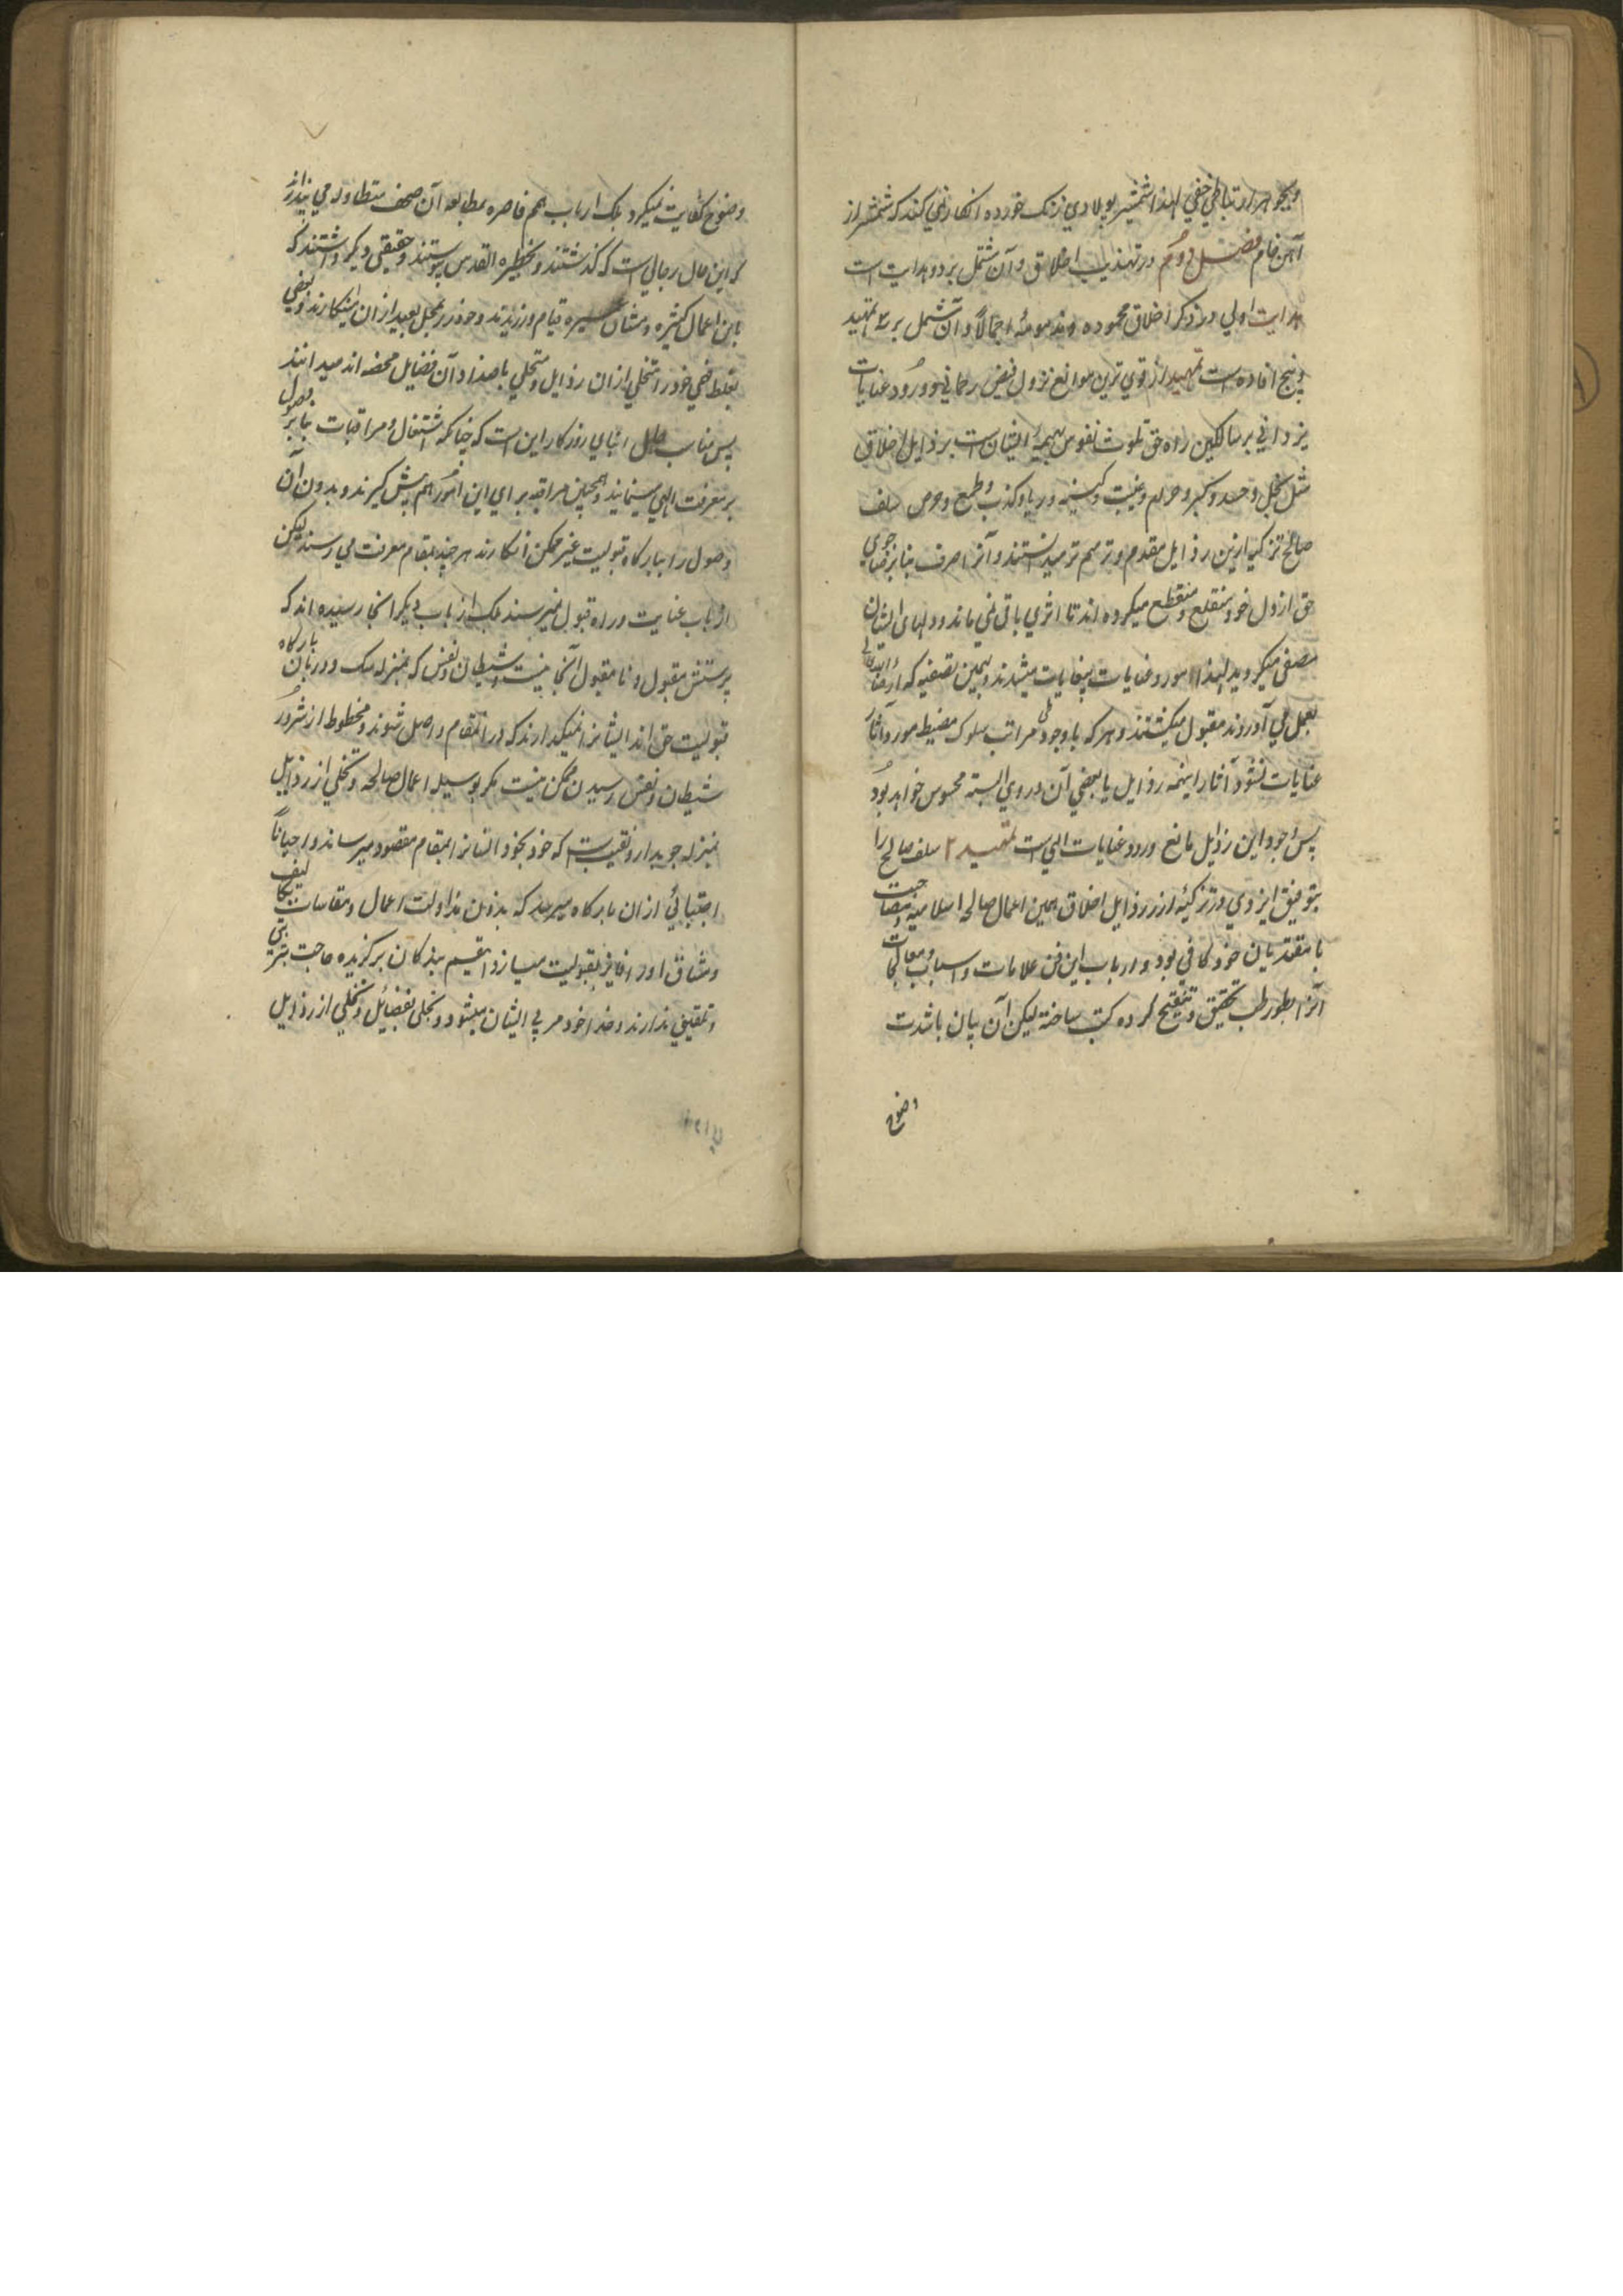 آهن خام فصل دوم در تهذیب اخلاق و آن مشتمل بر دو هدایت است
هدایت اولی در ذکر اخلاق محموده و مذمومه اجمالاً و آن مشتمل بر ۳ تمهید
و پنج افاده است تمهید از قوی ترین موانع نزول فیض رحمانی و ورود عنایات
یزدانی بر سالکین راه حق تلوث نفوس بهیمیه ایشان ست برذایل اخلاق
مثل بخل و حسد و کبر و حرام و غیبت و کینه و ریا و کذب و طمع و حرص سلف
صالح تزکیه ازین رذایل مقدم و تر مهم تر میدانستند و آنرا صرف بنابر رضاجوی
حق از دل خود منقلع و منقطع میکرده اند تا اثری باقی نمی ماند و دلهای ایشان
مصفی میگردید لهذا مورد عنایات بیغایات میشدند و بهمین تصفیه که
بعمل می آوردند مقبول میگشتند و هر که با وجود طی مراتب سلوک مورد آثار
عنایات نشود آثار اینهمه رذایل یا بعضی آن در وی البته محسوس خواهد بود
پس وجود این رذایل مانع ورود عنایات الهی ست تمهید ۲ سلف صالح را
بتوفیق ایزدی در تزکیه از رذایل اخلاق همین اعمال صالحه اسلامیه و مصاحبت
با مقتدیان خود کافی بود و ارباب این فن علامات و اسباب و معالجات
آنرا بطور طب تحقیق و تنقیح کرده کتب ساخته لیکن آن بیان باشدت
وضوح
وضوح کفایت نمیکرد بلکه ارباب همم قاصره بمطالعه آن صحف متطاوله می پندارند
که این حال رجالی ست که گذشتند و بحظیره القدس پیوستند و حقیقی دیگر داشتند که
باین اعمال کثیره و مشاق عسیره قیام ورزیدند و خود را بمحل بعید از ان می انگارند و بعضی
بغلط فهمی خود را متخلی از ان رذایل و متحلی باضداد آن فضایل محضه اند میدانند
پس مناسب حال ابنای روزگار این است که چنانکه اشتغال و مراقبات بنابر وصول
بر معرفت الهی مینمایند و همچنین مراقبه برای این امور هم پیش گیرند و بدون آن
وصول را ببارگاه قبولیت غیر ممکن انگارند هر چند بمقام معرفت می رسند لیکن
از باب عنایت و راه قبول نمیرسند بلکه از باب دیگر آنجا رسیده اند که
پرسش مقبول و نامقبول آنجا نیست و شیطان و نفس که بمنزله سگ و دربان بارگاه
قبولیت حق اند ایشانرا نمیگذارند که در آنمقام واصل شوند و محظوظ از شرور
شیطان و نفس رسیدن ممکن نیست مگر بوسیله اعمال صالحه و تخلی از رذایل
بمنزله چوبدار و نقیب ست که خود بخود انسانرا بمقام مقصود میرساند و احیاناً
اجتبائی از ان بارگاه میرسد که بدون مداولت اعمال و مقاسات تکالیف
و مشاق اورا فایز بقبولیت میسازد اینقسم بندگان برگزیده حاجت
و تلقینی ندارند و خدا خود مربی ایشان میشود و تحلی بفضایل و تخلی از رذایل